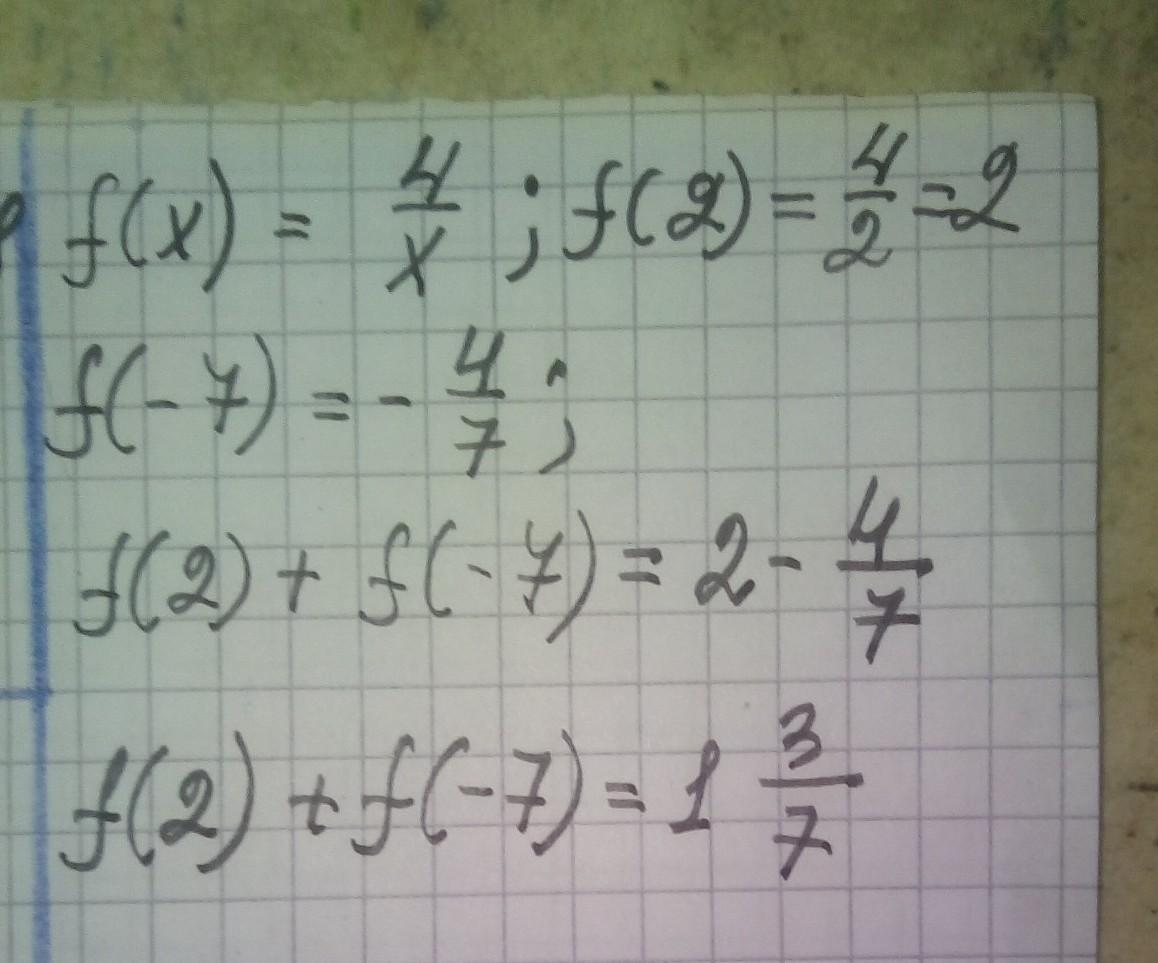 f(x) = 4/x ; f(2) = 4/2 = 2
f(-7) = - 4/7 ;
f(2) + f(-7) = 2 - 4/7
f(2) + f(-7) = 1 3/7